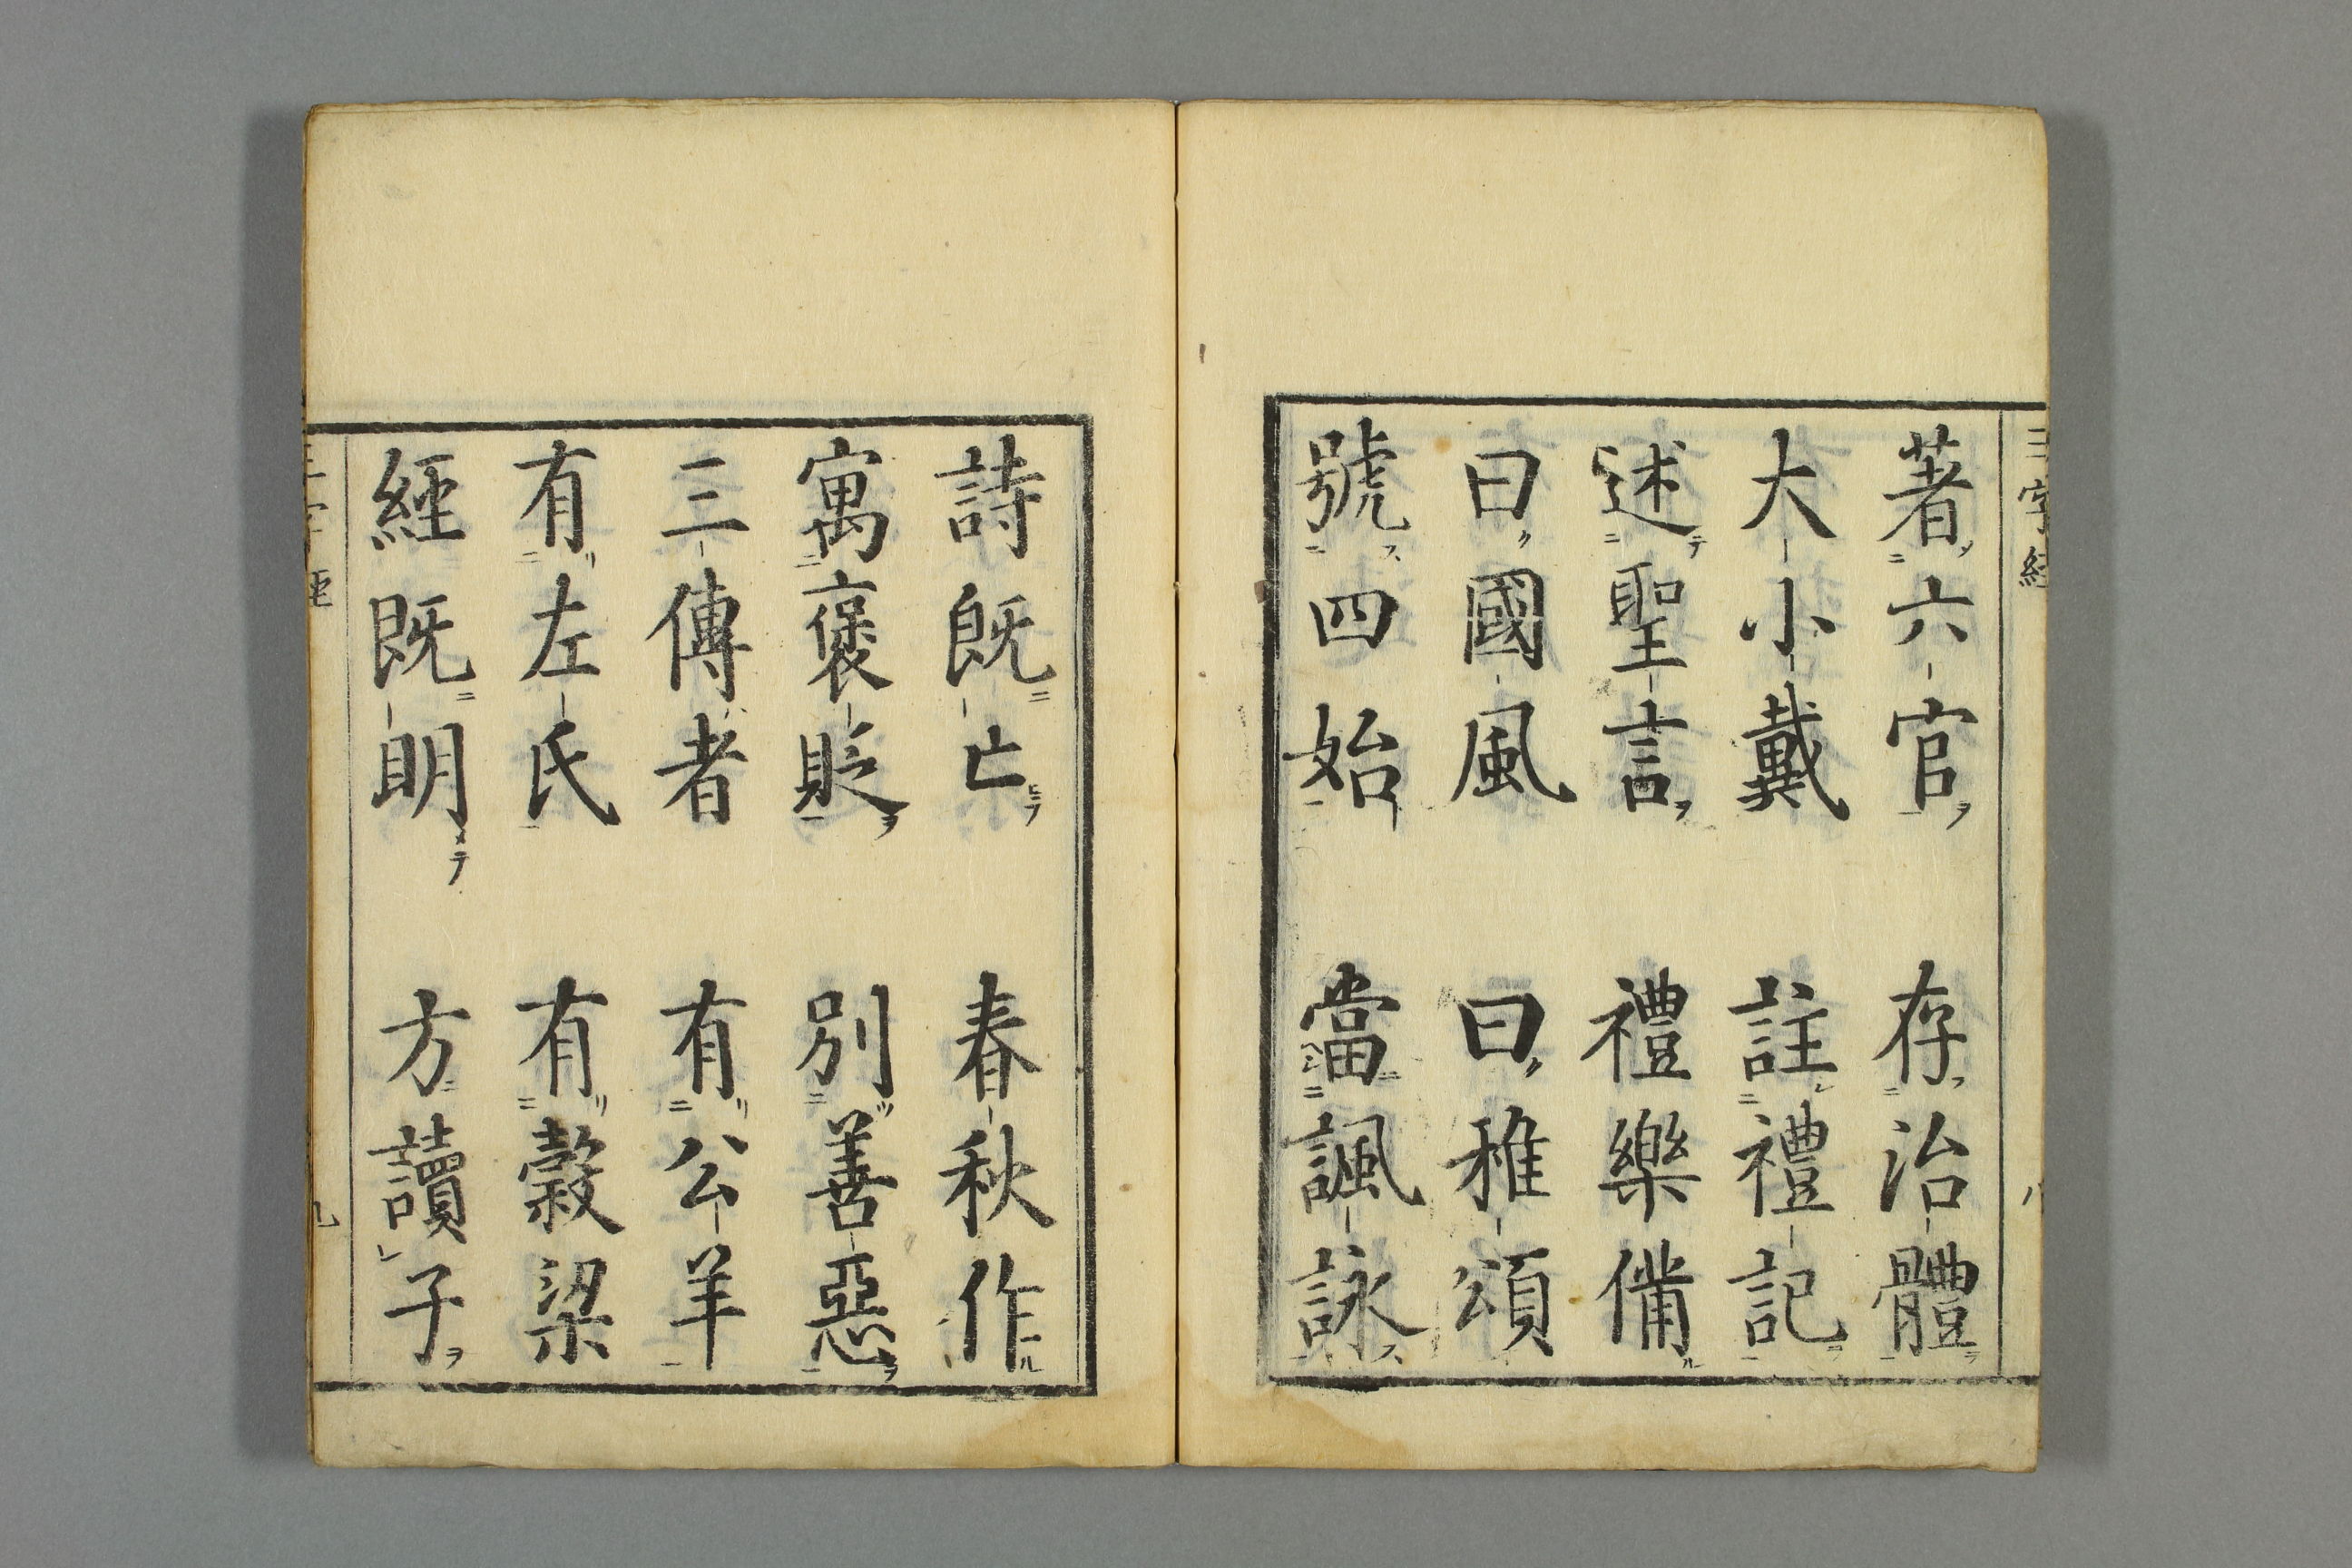 三字經
著六官 存治體
大小戴 註禮記
述聖言 禮樂備
曰國風 曰雅頌
號四始 當諷詠
詩既亡 春秋作
寓褒貶 別善惡
三傳者 有公羊
有左氏 有穀梁
經既明 方讀子